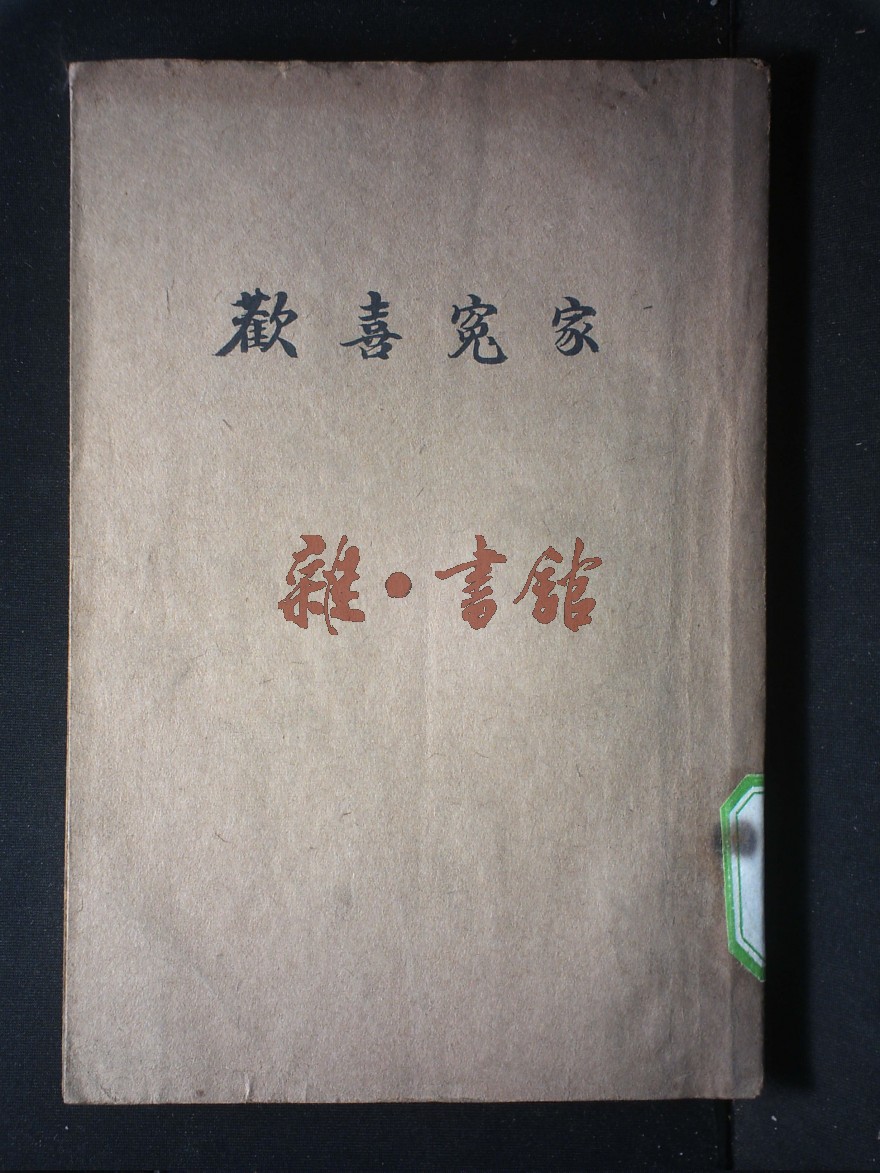 歡喜冤家
雜·書館